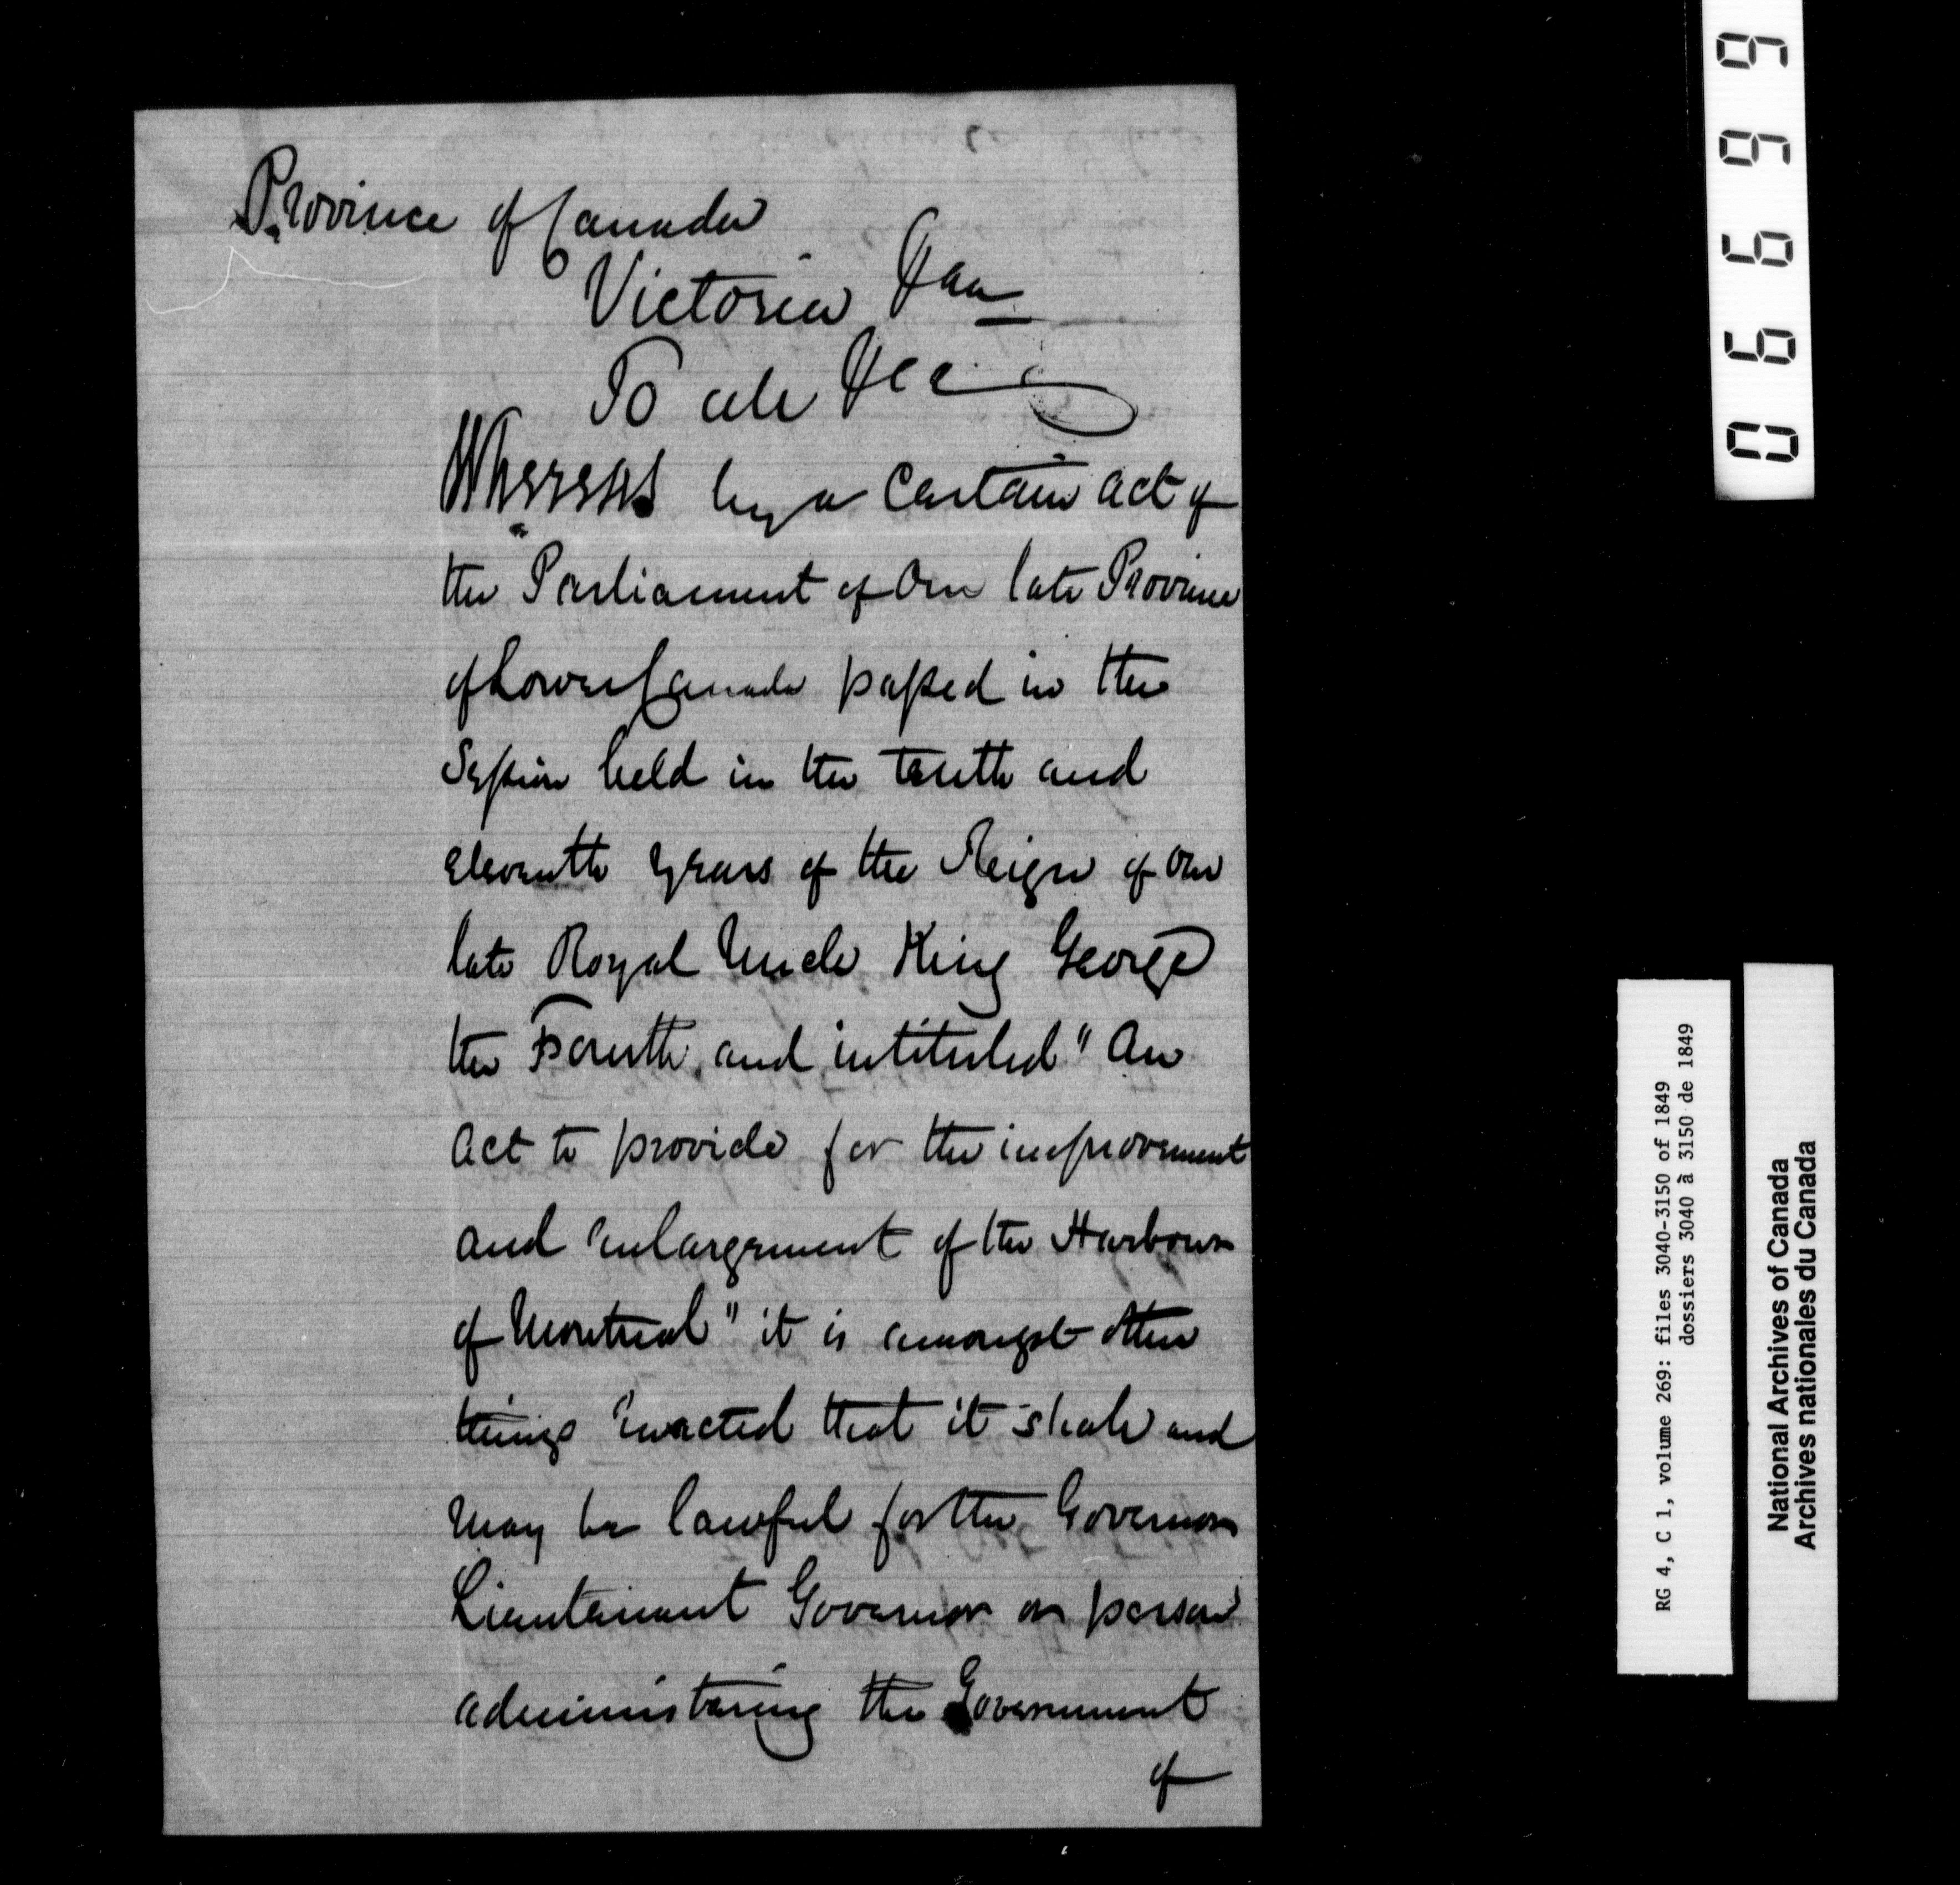 Province of Canada
Victoria &c
To all &c
Whereas by a Certain Act of
the Parliament of Our late Province
of Lower Canada passed in the
Session held in the tenth and
eleventh years of the Reign of Our
late Royal Uncle King George
the Fourth, and intituled "An
Act to provide for the improvement
and enlargement of the Harbour
of Montreal" it is amongst other
things enacted that it shall and
may be lawful for the Governor
Lieutenant Governor or person
administering the Government
of
06699
RG 4, C 1, volume 269: files 3040-3150 of 1849
dossiers 3040 à 3150 de 1849
National Archives of Canada
Archives nationales du Canada